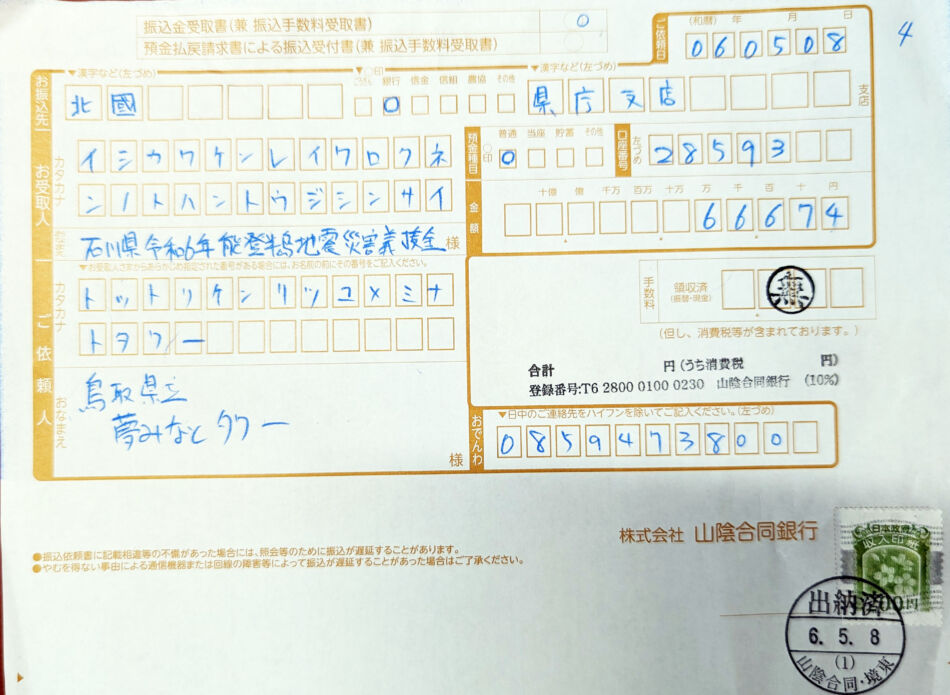 振込金受取書(兼 振込手数料受取書) ○
預金払戻請求書による振込受付書(兼 振込手数料受取書)
ご依頼日 (和暦) 年 月 日
060508
4
お振込先
▼漢字など(左づめ) ▼○印 銀行 信金 信組 農協 その他 ▼漢字など(左づめ)
北國 ○ 県庁支店 支店
お受取人
カタカナ
イシカワケンレイワロクネ
ンノトハントウジシンサイ
預金種目 ○印 普通 当座 貯蓄 その他
○
口座番号 左づめ 28593
金額 十億 億 千万 百万 十万 万 千 百 十 円
66674
おなまえ 石川県令和6年能登半島地震災害義援金 様
▼お受取人さまからあらかじめ指定された番号がある場合には、お名前の前にその番号をご記入ください。
ご依頼人
カタカナ
トットリケンリツユメミナ
トタワー
おなまえ
鳥取県立
夢みなとタワー
様
手数料 領収済 (振替・現金) 無
(但し、消費税等が含まれております。)
合計 円(うち消費税 円)
登録番号:T6 2800 0100 0230 山陰合同銀行 (10%)
おでんわ ▼日中のご連絡先をハイフンを除いてご記入ください。(左づめ)
0859473800
株式会社 山陰合同銀行
●振込依頼書に記載相違等の不備があった場合には、照会等のために振込が遅延することがあります。
●やむを得ない事由による通信機器または回線の障害等によって振込が遅延することがあった場合はご了承ください。
日本政府
収入印紙
00円
出納済
6. 5. 8
(1)
山陰合同・境東